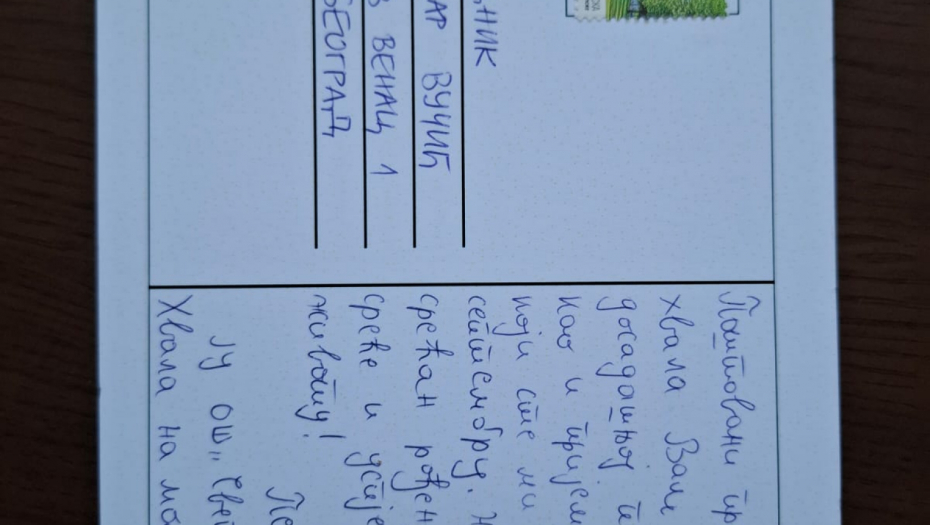 НИК
АР ВУЧИЋ
ВЕНАЦ 1
БЕОГРАД
Поштовани пр
хвала Вам
досадашњој п
као и пријем
који сте ми
септембру. Н
срећан рођен
среће и успје
животу!
По
ЈУ ОШ „Свет
Хвала на мо